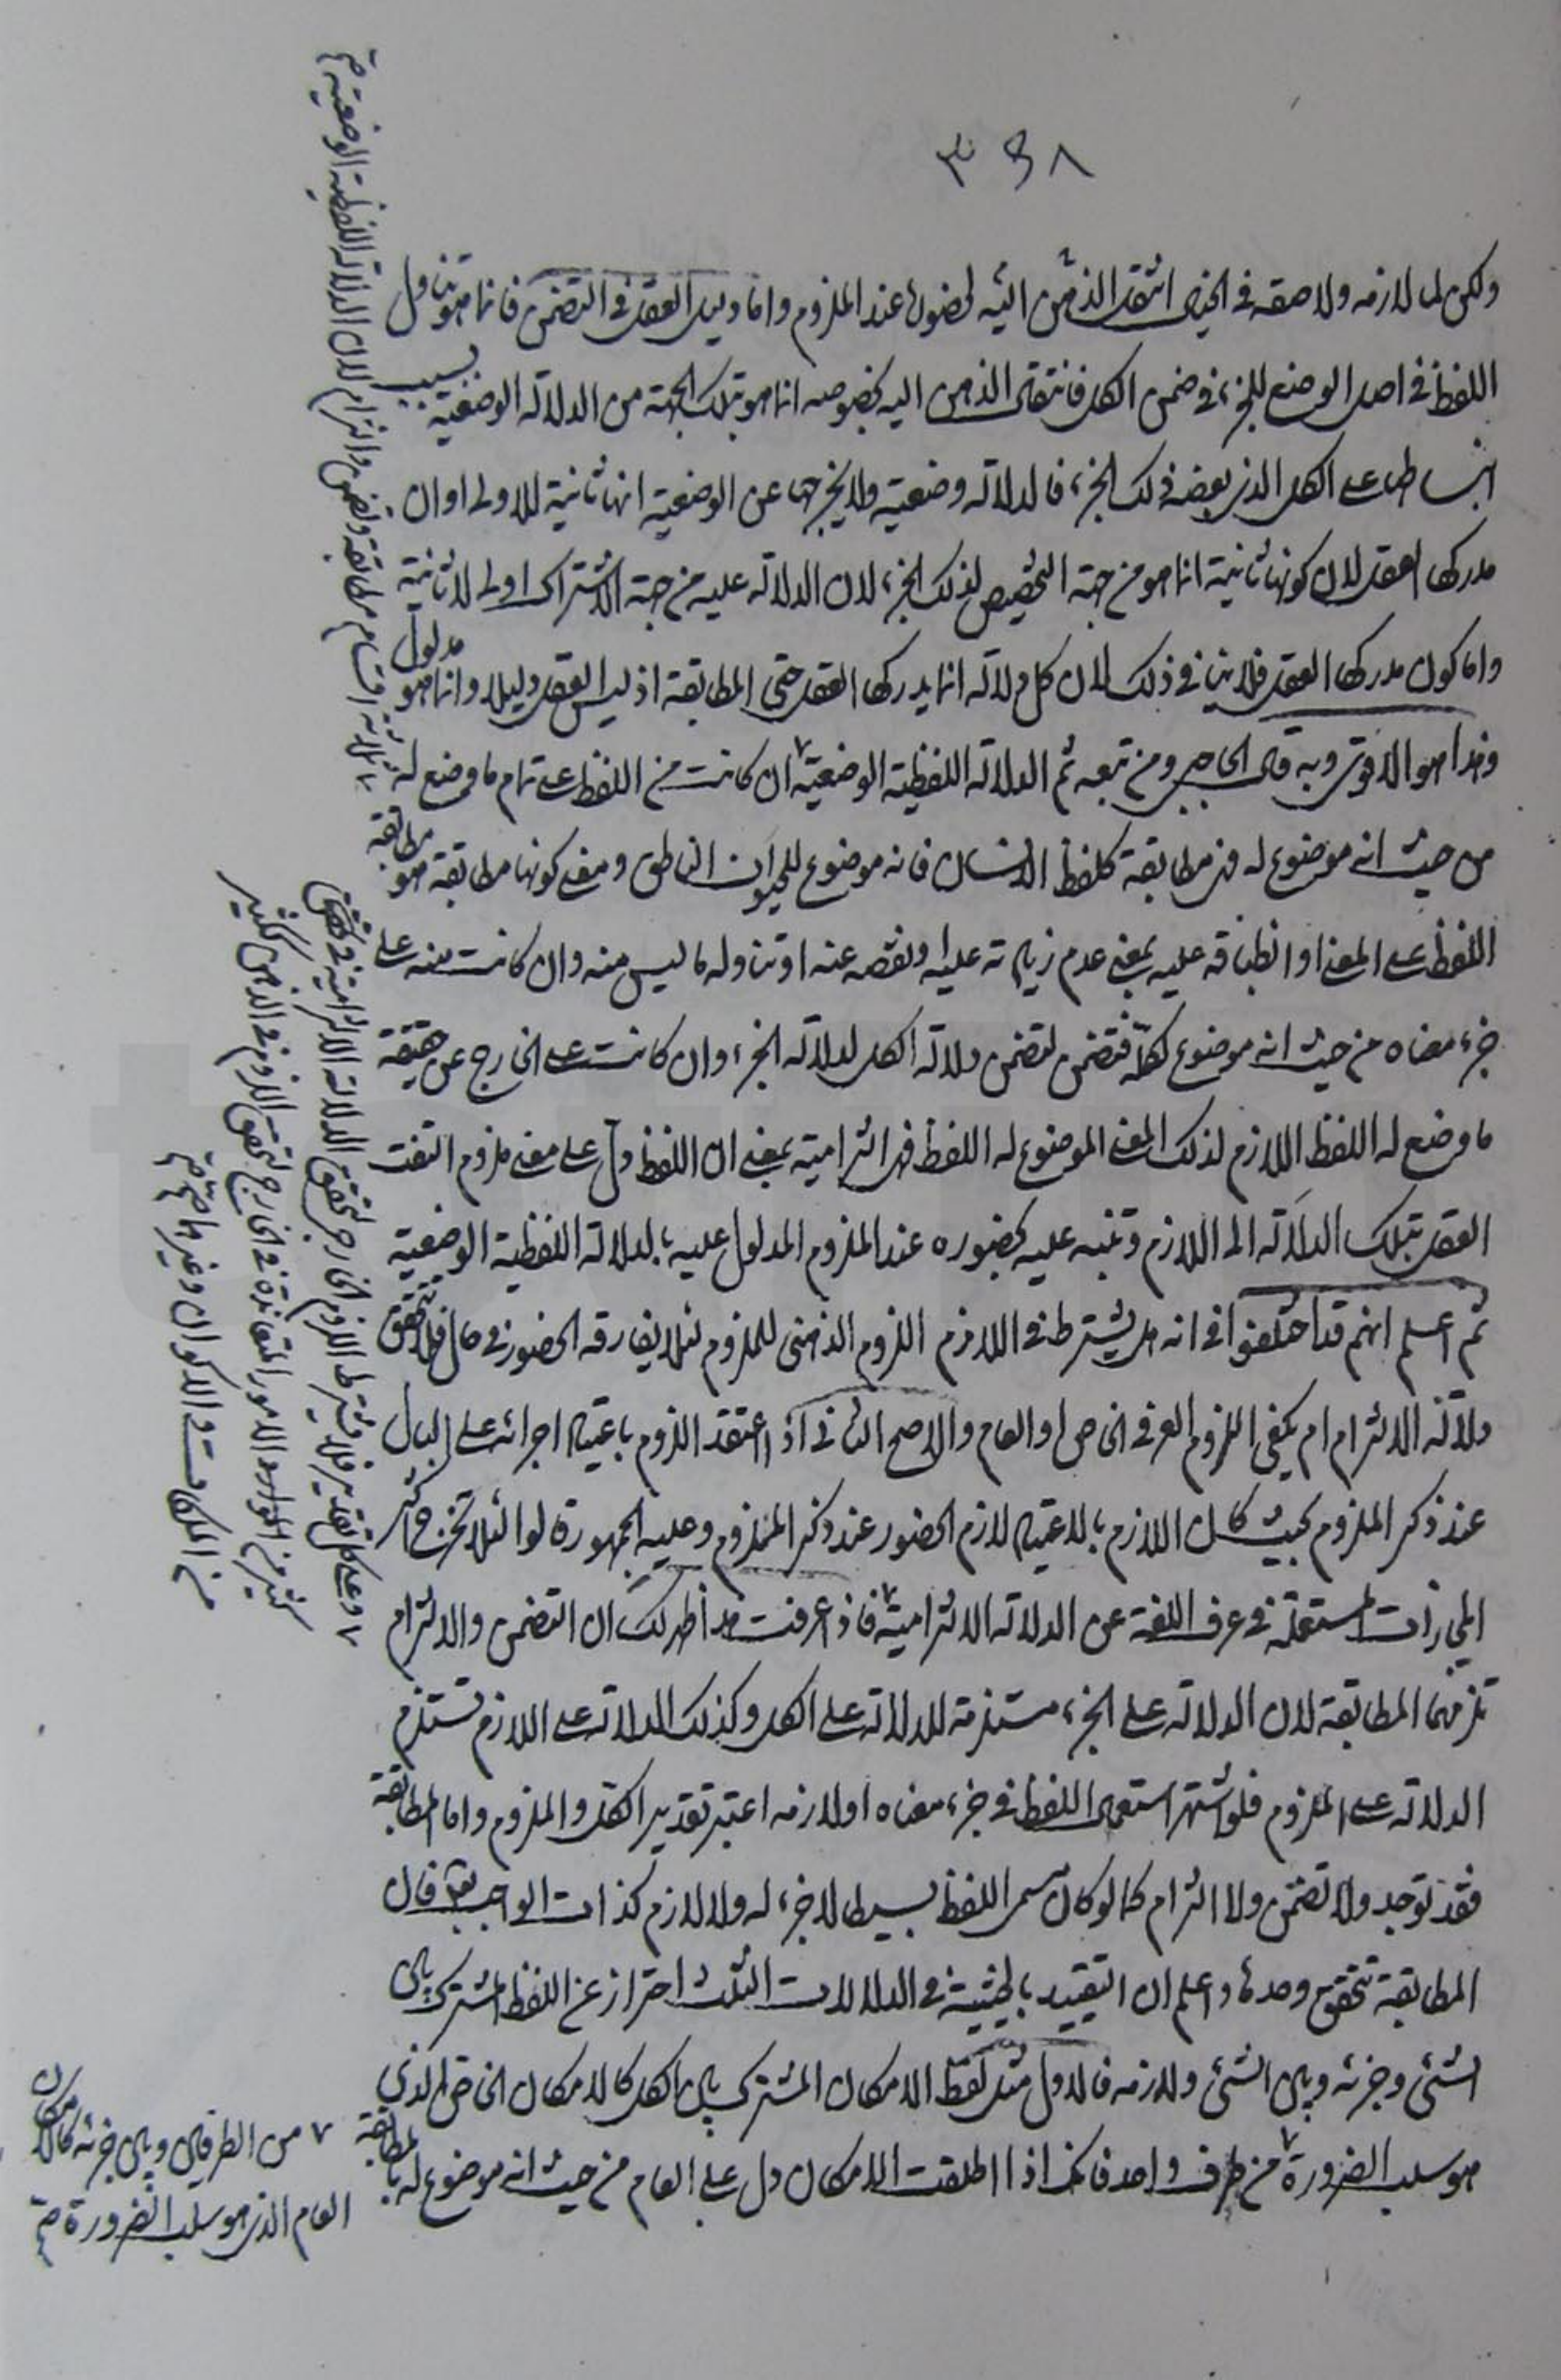 ٣٩٨
ولكن لما لازمه ولاصقه في الخيال انتقل الذهن اليه لحضوله عند الملزوم واما دليل العقل في التضمن فانما هو تناول
اللفظ في اصل الوضع للجزء في ضمن الكل فانتقال الذهن اليه بخصوصه انما هو بتلك الجهة من الدلالة الوضعية بسبب
انبساطها على الكل الذي بعضه ذلك الجزء فالدلالة وضعية ولا يخرجها عن الوضعية انها ثانية للاولى او ان
مدركها العقل لان كونها ثانية انما هو من جهة التخصيص لذلك الجزء لان الدلالة عليه من جهة الاشتراك اولى لا ثانية
واما كون مدركها العقل فلا ينافي ذلك لان كل دلالة انما يدركها العقل حتى المطابقة اذ ليس العقل دليلا وانما هو مدلول
وهذا هو الاقوى وبه قال الحاجبي ومن تبعه ثم الدلالة اللفظية الوضعية ان كانت من اللفظ على تمام ما وضع له
من حيث انه موضوع له فهي مطابقة كلفظ الانسان فانه موضوع للحيوان الناطق ومعنى كونها مطابقة هو مطابقة
اللفظ على المعنى او انطباقه عليه بمعنى عدم زيادته عليه او نقصه عنه او تناوله ما ليس منه وان كانت منه على
جزء معناه من حيث انه موضوع لكله فتضمن لتضمن دلالة الكل لدلالة الجزء وان كانت على الخارج عن حقيقة
ما وضع له اللفظ اللازم لذلك المعنى الموضوع له اللفظ فهي التزامية بمعنى ان اللفظ دل على معنى ملزوم التفت
العقل بتلك الدلالة الى اللازم وتنبه عليه بحضوره عند الملزوم المدلول عليه بالدلالة اللفظية الوضعية
ثم اعلم انهم قد اختلفوا في انه هل يشترط في اللازم اللزوم الذهني للملزوم لئلا يفارقه الحضور في حال فلا تتحقق
دلالة الالتزام ام يكفي اللزوم العرفي الخاص او العام والاصح الثاني اذ اعتقد اللزوم باعتياد اجرائه على البال
عند ذكر الملزوم بحيث كان اللازم بالاعتياد لازم الحضور عند ذكر الملزوم وعليه الجمهور قالوا لئلا تخرج اكثر
المجازات المستعملة في عرف اللغة عن الدلالة الالتزامية فاذ عرفت هذا ظهر لك ان التضمن والالتزام
تلزمهما المطابقة لان الدلالة على الجزء مستلزمة للدلالة على الكل وكذلك الدلالة على اللازم تستلزم
الدلالة على الملزوم فلو اشتهر استعمال اللفظ في جزء معناه او لازمه اعتبر تقدير الكل والملزوم واما المطابقة
فقد توجد ولا تضمن ولا التزام كما لو كان مسمى اللفظ بسيطا لا جزء له ولا لازم كذات الواجب تعالى فان
المطابقة تتحقق وحدها واعلم ان التقييد بالحيثية في الدلالات الثلث احتراز عن اللفظ المشترك بين
الشئ وجزئه وبين الشئ ولازمه فالاول مثل لفظ الامكان المشترك بين الكل كالامكان الخاص الذي
هو سلب الضرورة من طرف واحد فانك اذا اطلقت الامكان دل على العام من حيث انه موضوع له بالمطابقة
ثلاثة اقسام مطابقة وتضمن والتزام لان الدلالة اللفظية الوضعية
وعلى كل تقدير فلا يشترط اللزوم الخارجي لتحقق الدلالة الالتزامية
كثير من الموارد الامور المتعاندة في الخارج لتحقق اللزوم في الذهن لكثير
من الملكات والاكوان وغيرها
من الطرفين وبين جزئه كالامكان
العام الذي هو سلب الضرورة